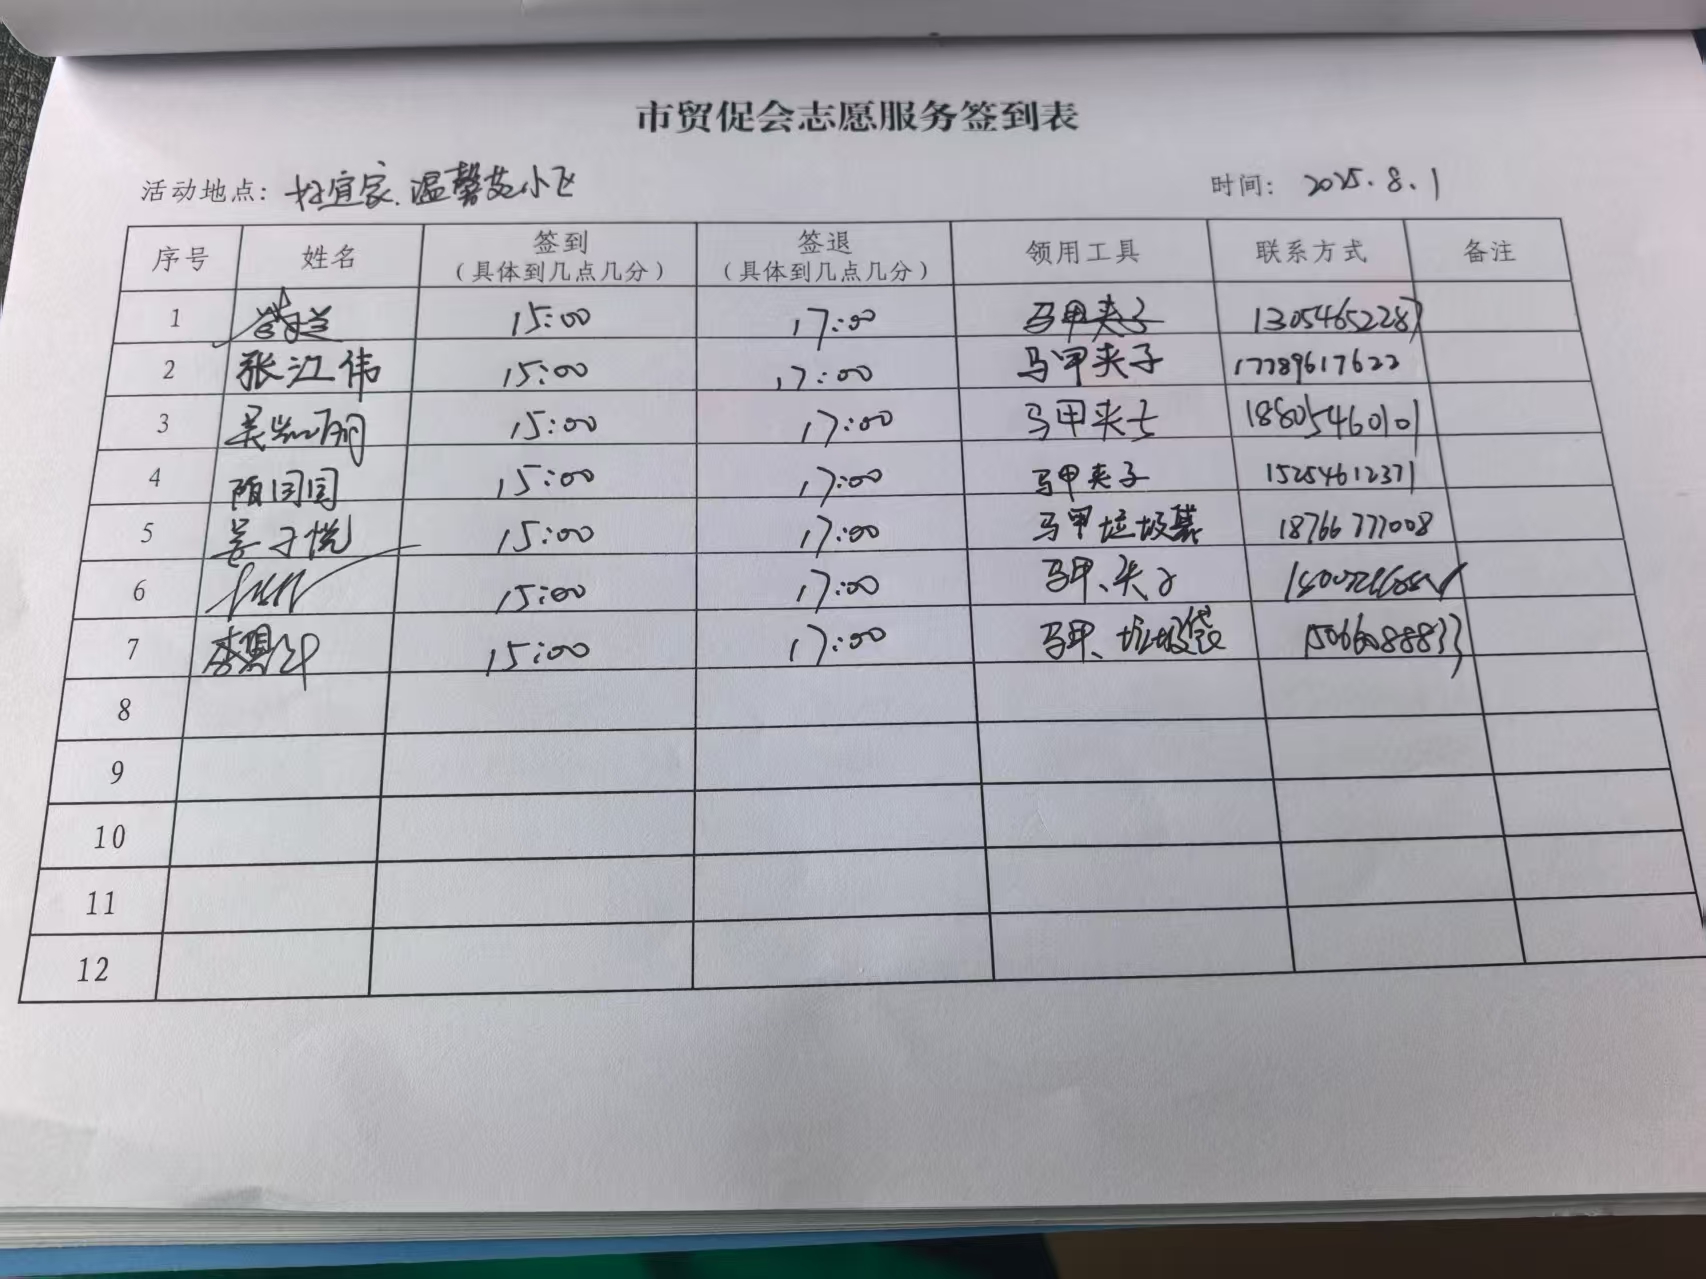 市贸促会志愿服务签到表
活动地点: 宜家.温馨 小 时间: 2025.8.1
序号 姓名 签到 (具体到几点几分) 签退 (具体到几点几分) 领用工具 联系方式 备注
1 15:00 17:00 马甲夹子 13054652287
2 张江伟 15:00 17:00 马甲夹子 17789617622
3 吴 15:00 17:00 马甲夹子 18805460101
4 15:00 17:00 马甲夹子 15254612371
5 姜子悦 15:00 17:00 马甲垃圾袋 18766777008
6 15:00 17:00 马甲、夹子
7 李 15:00 17:00 马甲、垃圾袋
8
9
10
11
12